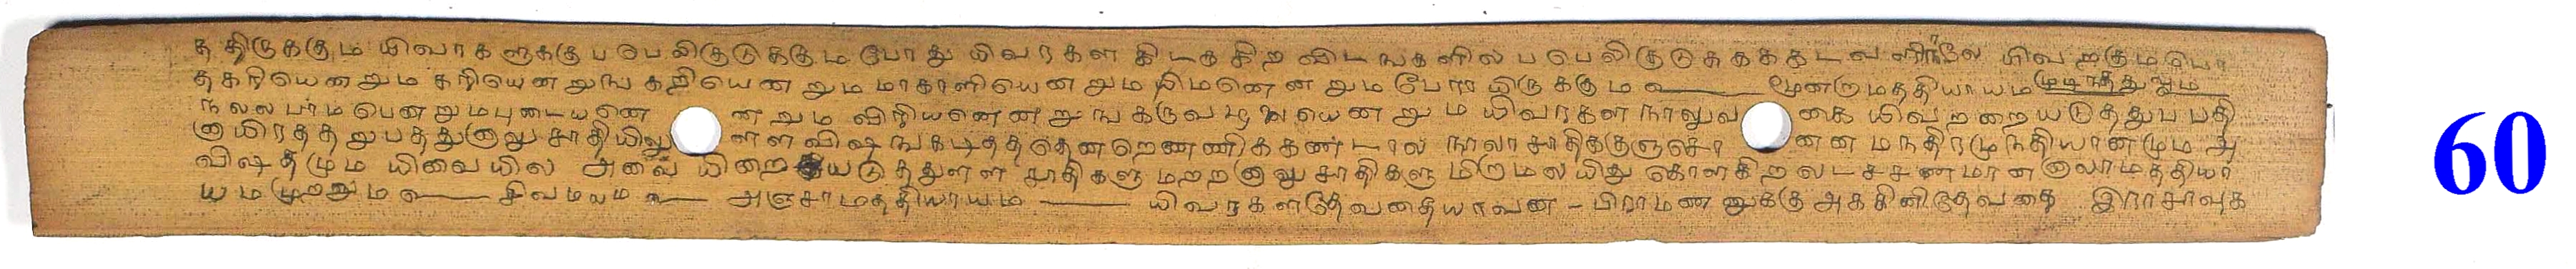 த திருககும யிவாக ளுககு ப பெ லிகுடுககும போது யிவரகள கிடககிற விடஙகளில ப பெலிகுடுசுகககடவ ளினலே யிவறகும பெர
தகரியெனறும கரியெனறுங கறியெனறும மாகாளியெனறும யிமனெனறும பேரா யிருககும மூனறுமததியாயம முடிநதது
நலல பாமபெனறும புடையனெ னறும விரியனெனறுங கருவழலையெனறும யிவரகள நாலுவ கை யிவறறையடுததுப பதி
னாயிரதத றுபதது நாலு சாதியிலு ளளவிஷ ஙகடிதத தெனறெணணிககணடால நாலாசாதிககுஞசொ னன மநதிரமு நதியானமும அ
விஷதமும யிவையில அவை யிறை யடுததுளள சாதிகளு மறற நாலு சாதிகளு மிருமலயிது கொளகிற லடசசணமான நாலாமததியா
யமமுறறும சிவமயம அஞசாமததியாயம யிவரகளடுதேவதையாவன - பிராமணனுககு அககினிதேவதை இராசாவுக
60